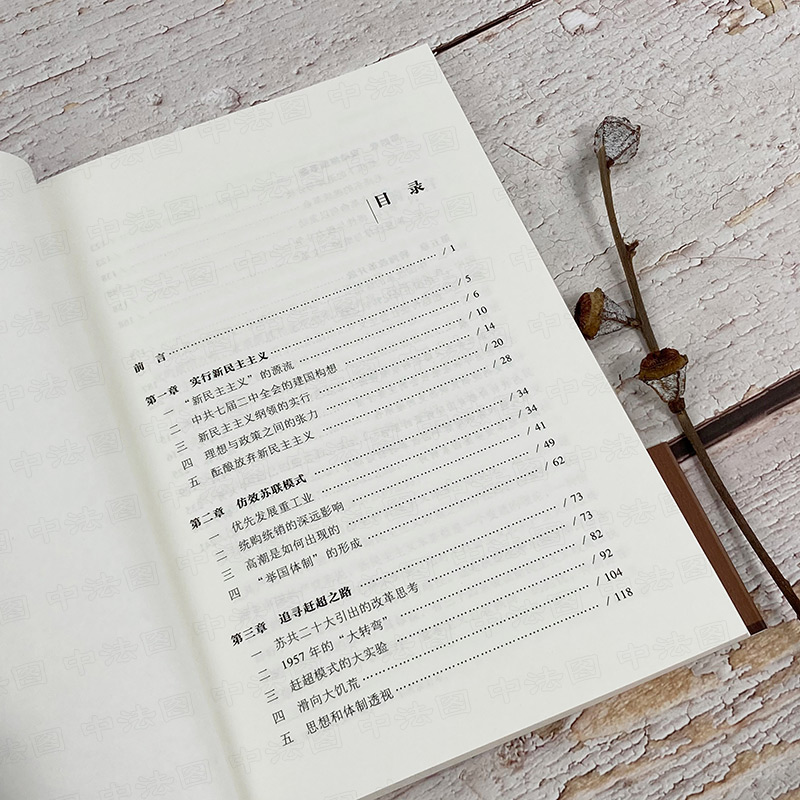 目 录
前 言 / 1
第一章 实行新民主主义 / 5
一 “新民主主义”的源流 / 6
二 中共七届二中全会的建国构想 / 10
三 新民主主义纲领的实行 / 14
四 理想与政策之间的张力 / 20
五 酝酿放弃新民主主义 / 28
第二章 仿效苏联模式 / 34
一 优先发展重工业 / 34
二 统购统销的深远影响 / 41
三 高潮是如何出现的 / 49
四 “举国体制”的形成 / 62
第三章 追寻赶超之路 / 73
一 苏共二十大引出的改革思考 / 73
二 1957 年的“大转弯” / 82
三 赶超模式的大实验 / 92
四 滑向大饥荒 / 104
五 思想和体制透视 / 118
中法图